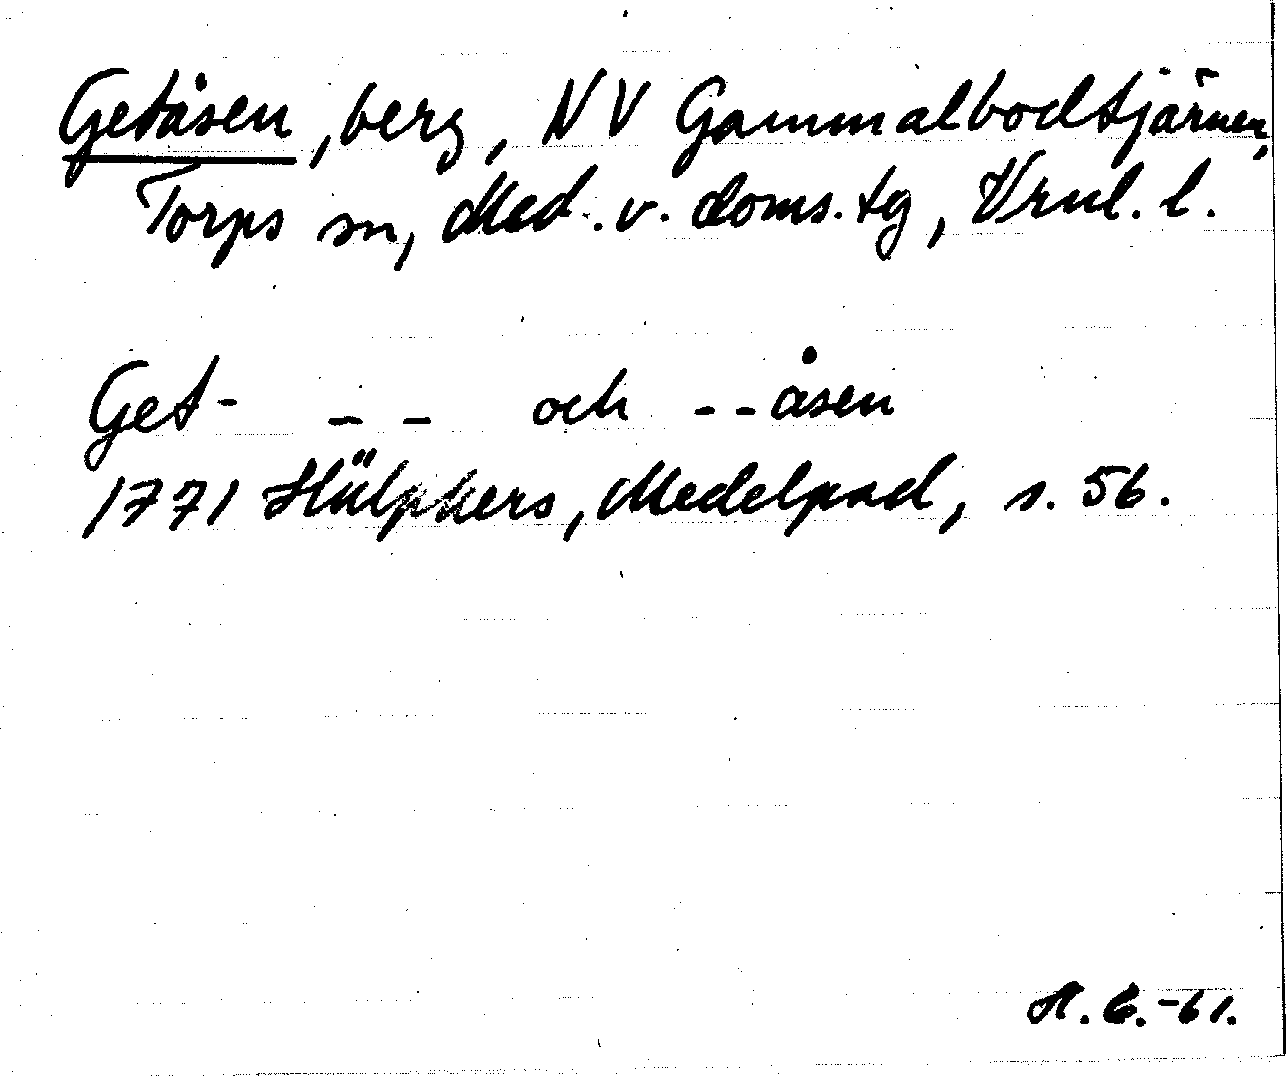 Getåsen, berg, NV Gammalbodtjärnen,
Torps sn, Med. v. doms. tg, Vrnl. l.
Get- - - och - - åsen
1771 Hülphers, Medelpad, s. 56.
-61.